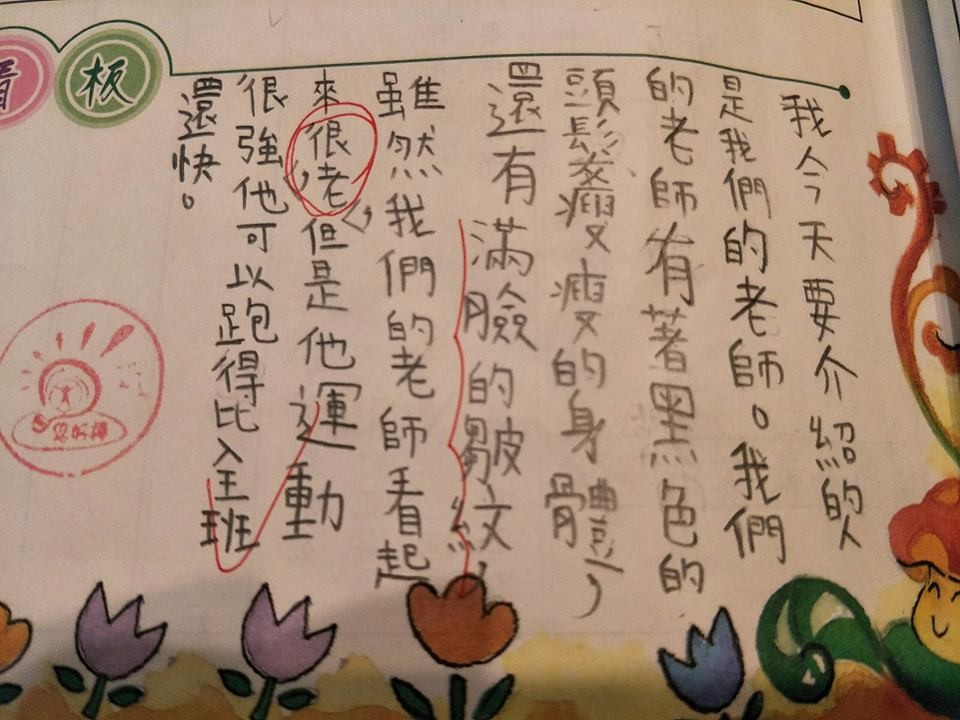 板
我今天要介紹的人
是我們的老師。我們
的老師有著黑色的
頭髮瘦瘦的身體,
還有滿臉的皺紋,
雖然我們的老師看起
來很老,但是他運動
很強他可以跑得比全班
還快。